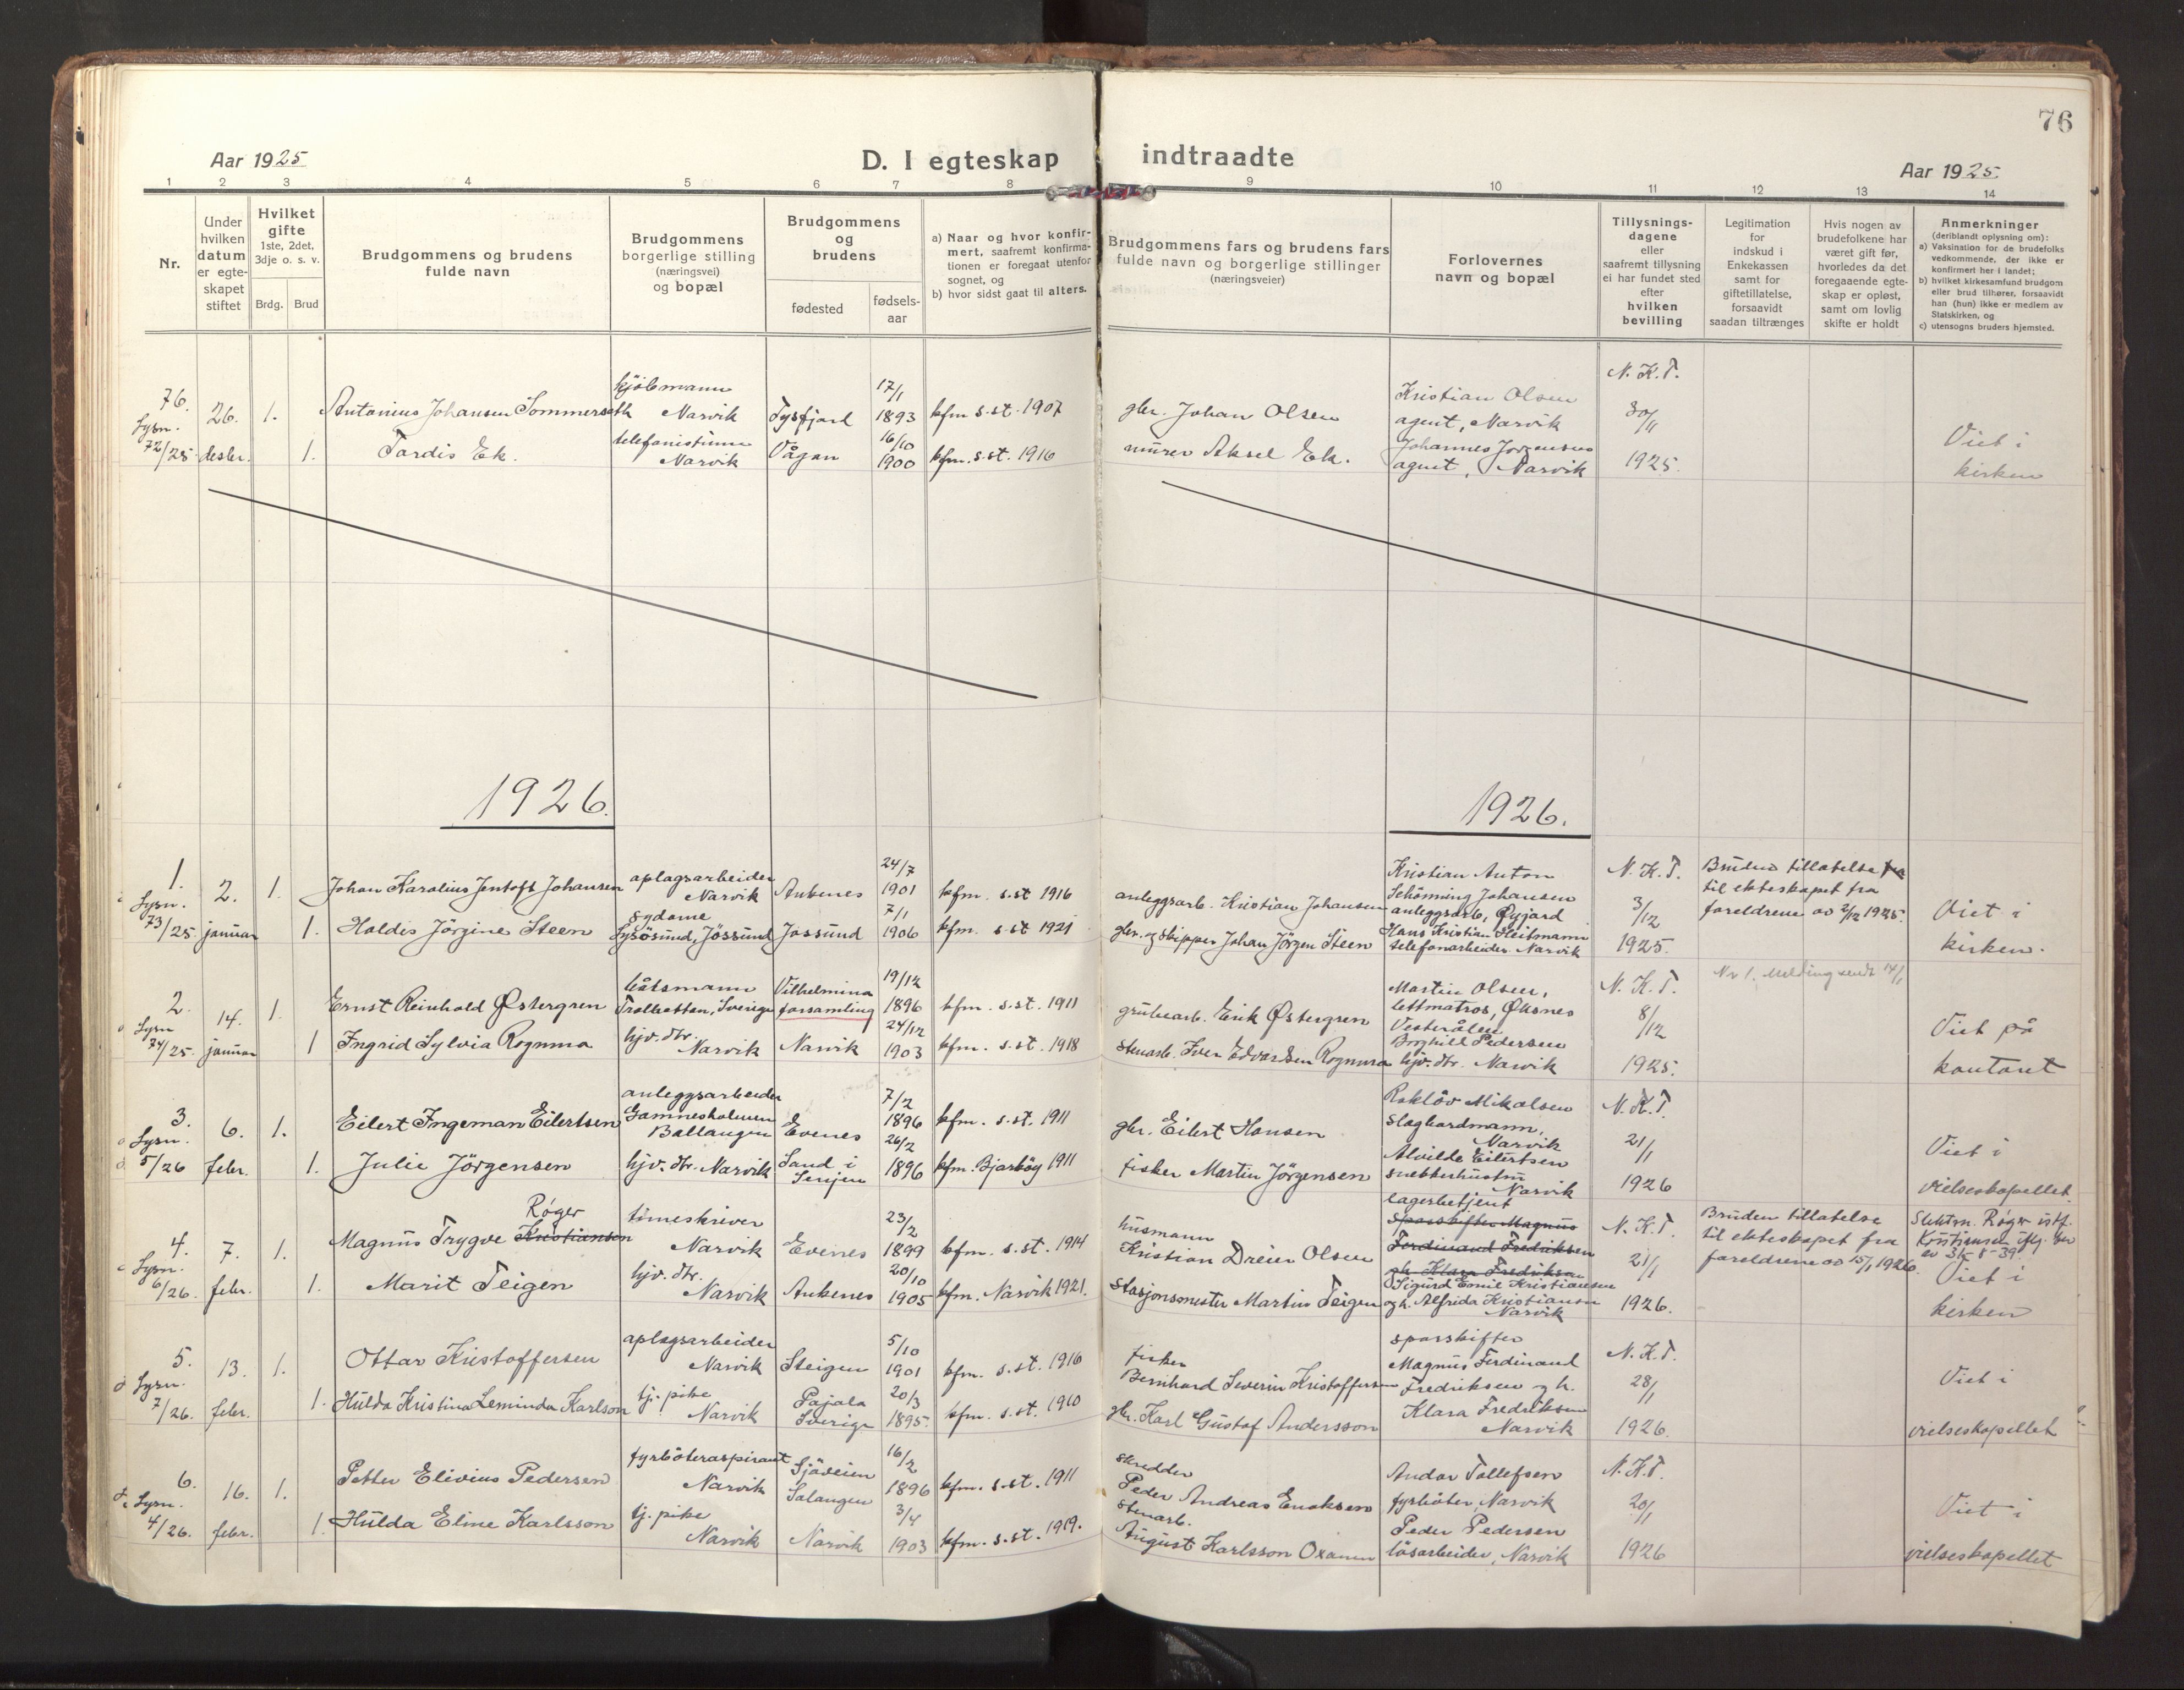 76
Aar 1925
D. I egteskap indtraadte
Aar 1925.
1 2 3 4 5 6 7 8 9 10 11 12 13 14
Nr.
Under
hvilken
datum
er egte-
skapet
stiftet
Hvilket
gifte
1ste, 2det,
3dje o. s. v.
Brdg. Brud
Brudgommens og brudens
fulde navn
Brudgommens
borgerlige stilling
(næringsvei)
og bopæl
Brudgommens
og
brudens
fødested
fødsels-
aar
a) Naar og hvor konfir-
mert, saafremt konfirma-
tionen er foregaat utenfor
sognet, og
b) hvor sidst gaat til alters.
Brudgommens fars og brudens fars
fulde navn og borgerlige stillinger
(næringsveier)
Forlovernes
navn og bopæl
Tillysnings-
dagene
eller
saafremt tillysning
ei har fundet sted
efter
hvilken
bevilling
Legitimation
for
indskud i
Enkekassen
samt for
giftetillatelse,
forsaavidt
saadan tiltrænges
Hvis nogen av
brudefolkene har
været gift før,
hvorledes da det
foregaaende egte-
skap er opløst,
samt om lovlig
skifte er holdt
Anmerkninger
(deriblandt oplysning om):
a) Vaksination for de brudefolks
vedkommende, der ikke er
konfirmert her i landet;
b) hvilket kirkesamfund brudgom
eller brud tilhører, forsaavidt
han (hun) ikke er medlem av
Statskirken, og
c) utensogns bruders hjemsted.
76.
Lysn.
72/25
26.
desbr.
1.
1.
Antonius Johansen Sommerseth
Tordis Ek.
kjøbmann
Narvik
telefonistinne
Narvik
Tysfjord
Vågan
17/1
1893
16/10
1900
kfm s.st. 1907
kfm. s.st. 1916
gbr. Johan Olsen
murer Aksel Ek.
Kristian Olsen
agent, Narvik
Johannes Jørgensen
agent, Narvik
N. K. T.
30/11
1925.
Viet i
kirken
1926.
1926.
1.
Lysn.
73/25
2.
januar
1.
1.
Johan Karolius Jentoft Johansen
Haldis Jörgine Steen
oplagsarbeider
Narvik
sydame
Lysösund, Jössund
Ankenes
Jossund
24/7
1901
7/1
1906
kfm. s.st 1916
kfm. s.st 1921
anleggsarb. Kristian Johansen
gbr. og skipper Johan Jörgen Steen
Kristian Anton
Schönning Johansen
anleggsarb, Øyjord
Hans Kristian Heitmann
telefonarbeider Narvik
N. K. T.
3/12
1925.
Bruden tillatelse
til ekteskapet fra
foreldrene av 2/12 1925.
Viet i
kirken.
2.
Lysn
74/25.
14.
januar
1.
1
Ernst Reinhold Østergren
Ingrid Sylvia Rognmo
båtsmann
Trollhettan, Sverige
hjv. dtr.
Narvik
Vilhelmina
forsamling
Narvik
19/12
1896
24/12
1903
kfm. s.st. 1911
kfm. s.st. 1918
grubearb. Erik Østergren
stenarb. Iver Edvardsen Rognmo
Martin Olsen,
lettmatros, Øksnes
Vesterålen
Borghill Pedersen
hjv. dtr. Narvik
N. K. T.
8/12
1925.
Nr 1. Melding sendt 14/1
Viet på
kontoret
3.
Lysn.
5/26
6.
febr.
1.
1.
Eilert Ingeman Eilertsen
Julie Jörgensen
anleggsarbeider
Gamnesholmen
Ballangen
hjv. dtr. Narvik
Evenes
Sand i
Senjen
7/2
1896
26/2
1896
kfm. s.st. 1911
kfm. Bjarköy 1911
gbr. Eilert Hansen
fisker Martin Jörgensen
Mikalsen
Narvik
Alvilde Eilertsen
snekkerhustru
Narvik
N. K. T.
21/1
1926
Viet i
vielseskapellet.
4.
Lysn.
6/26.
7.
febr.
1.
1.
Røger
Magnus Trygve Kristiansen
Marit Teigen
timeskriver
Narvik
hjv. dtr.
Narvik
Evenes
Ankenes
23/2
1899
20/10
1905
kfm. s.st. 1914
kfm. Narvik 1921.
husmann
Kristian Dreier Olsen
Stasjonsmester Martin Teigen
lagerbetjent
sporskifter Magnus
Ferdinand Fredriksen
og h. Klara Fredriksen
Sigurd Emil Kristiansen
og h. Alfrida Kristiansen
Narvik
N. K. T.
21/1
1926.
Bruden tillatelse
til ekteskapet fra
foreldrene av 15/1 1926.
Slektsn. Røger istf.
Kristiansen ifg. bev
av 31-8-39.
Viet i
kirken
5.
Lysn.
7/26.
13.
febr.
1.
1.
Ottar Kristoffersen
Hulda Kristina Leminda Karlson
oplagsarbeider
Narvik
tj. pike
Narvik
Steigen
Pajala
Sverige
5/10
1901
20/3
1895.
kfm. s.st. 1916
kfm. s.st. 1910
fisker
Bernhard Severin Kristoffersen
gbr. Karl Gustaf Andersson
sporskifter
Magnus Ferdinand
Fredriksen og h.
Klara Fredriksen
Narvik
N. K. T.
28/1
1926.
Viet i
vielseskapellet
6.
Lysn.
4/26.
16.
febr.
1.
1.
Petter Elivius Pedersen
Hulda Eline Karlsson
fyrbøteraspirant
Narvik
tj. pike
Narvik
Sjöveien
Salangen
Narvik
16/2
1896
3/4
1903
kfm. s.st. 1911
kfm. s.st. 1919.
skredder
Peder Andreas Enoksen
stenarb.
August Karlsson Oxanen
Andor Tollefsen
fyrbøter, Narvik
Peder Pedersen
løsarbeider, Narvik
N. K. T.
20/1
1926
Viet i
vielseskapellet